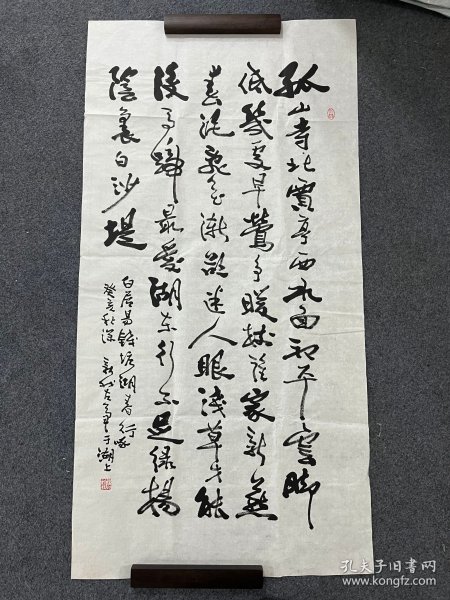 孤山寺北賈亭西水面初平雲脚
低幾處早鶯爭暖樹誰家新燕
春泥亂花漸欲迷人眼淺草才能
没馬蹄最愛湖東行不足綠楊
陰裏白沙堤
白居易錢塘湖春行 啄
癸亥秋深 于湖上
孔夫子旧书网
www.kongfz.com